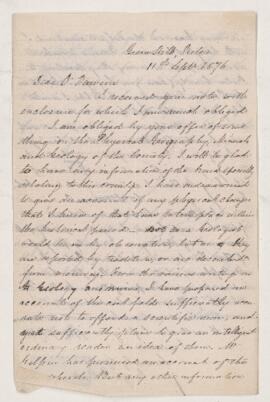 11th Sept. 1876
Dear Dr. Dawson
I received your note with
enclosure for which I am much obliged
I am obliged by your offer of some
thing on the Physical Geography, Mineral
and Geology of the County. I will be glad
to have any information of the kind specially
relating to this county. I have endeavoured
to give an account of any physical changes
that I know of that have taken place within
the historical period. Not as a Geologist
would be in his observation, but as they
are reported by tradition, or are recorded
from memory. From the various writings on
the Geology and mines, I have prepared an
account of the coal fields sufficiently accu
rate not to offend a scientific man, and
yet sufficiently plain to give an intelligent
ordinary reader an idea of them. Mr
has promised an account of the
But any other information